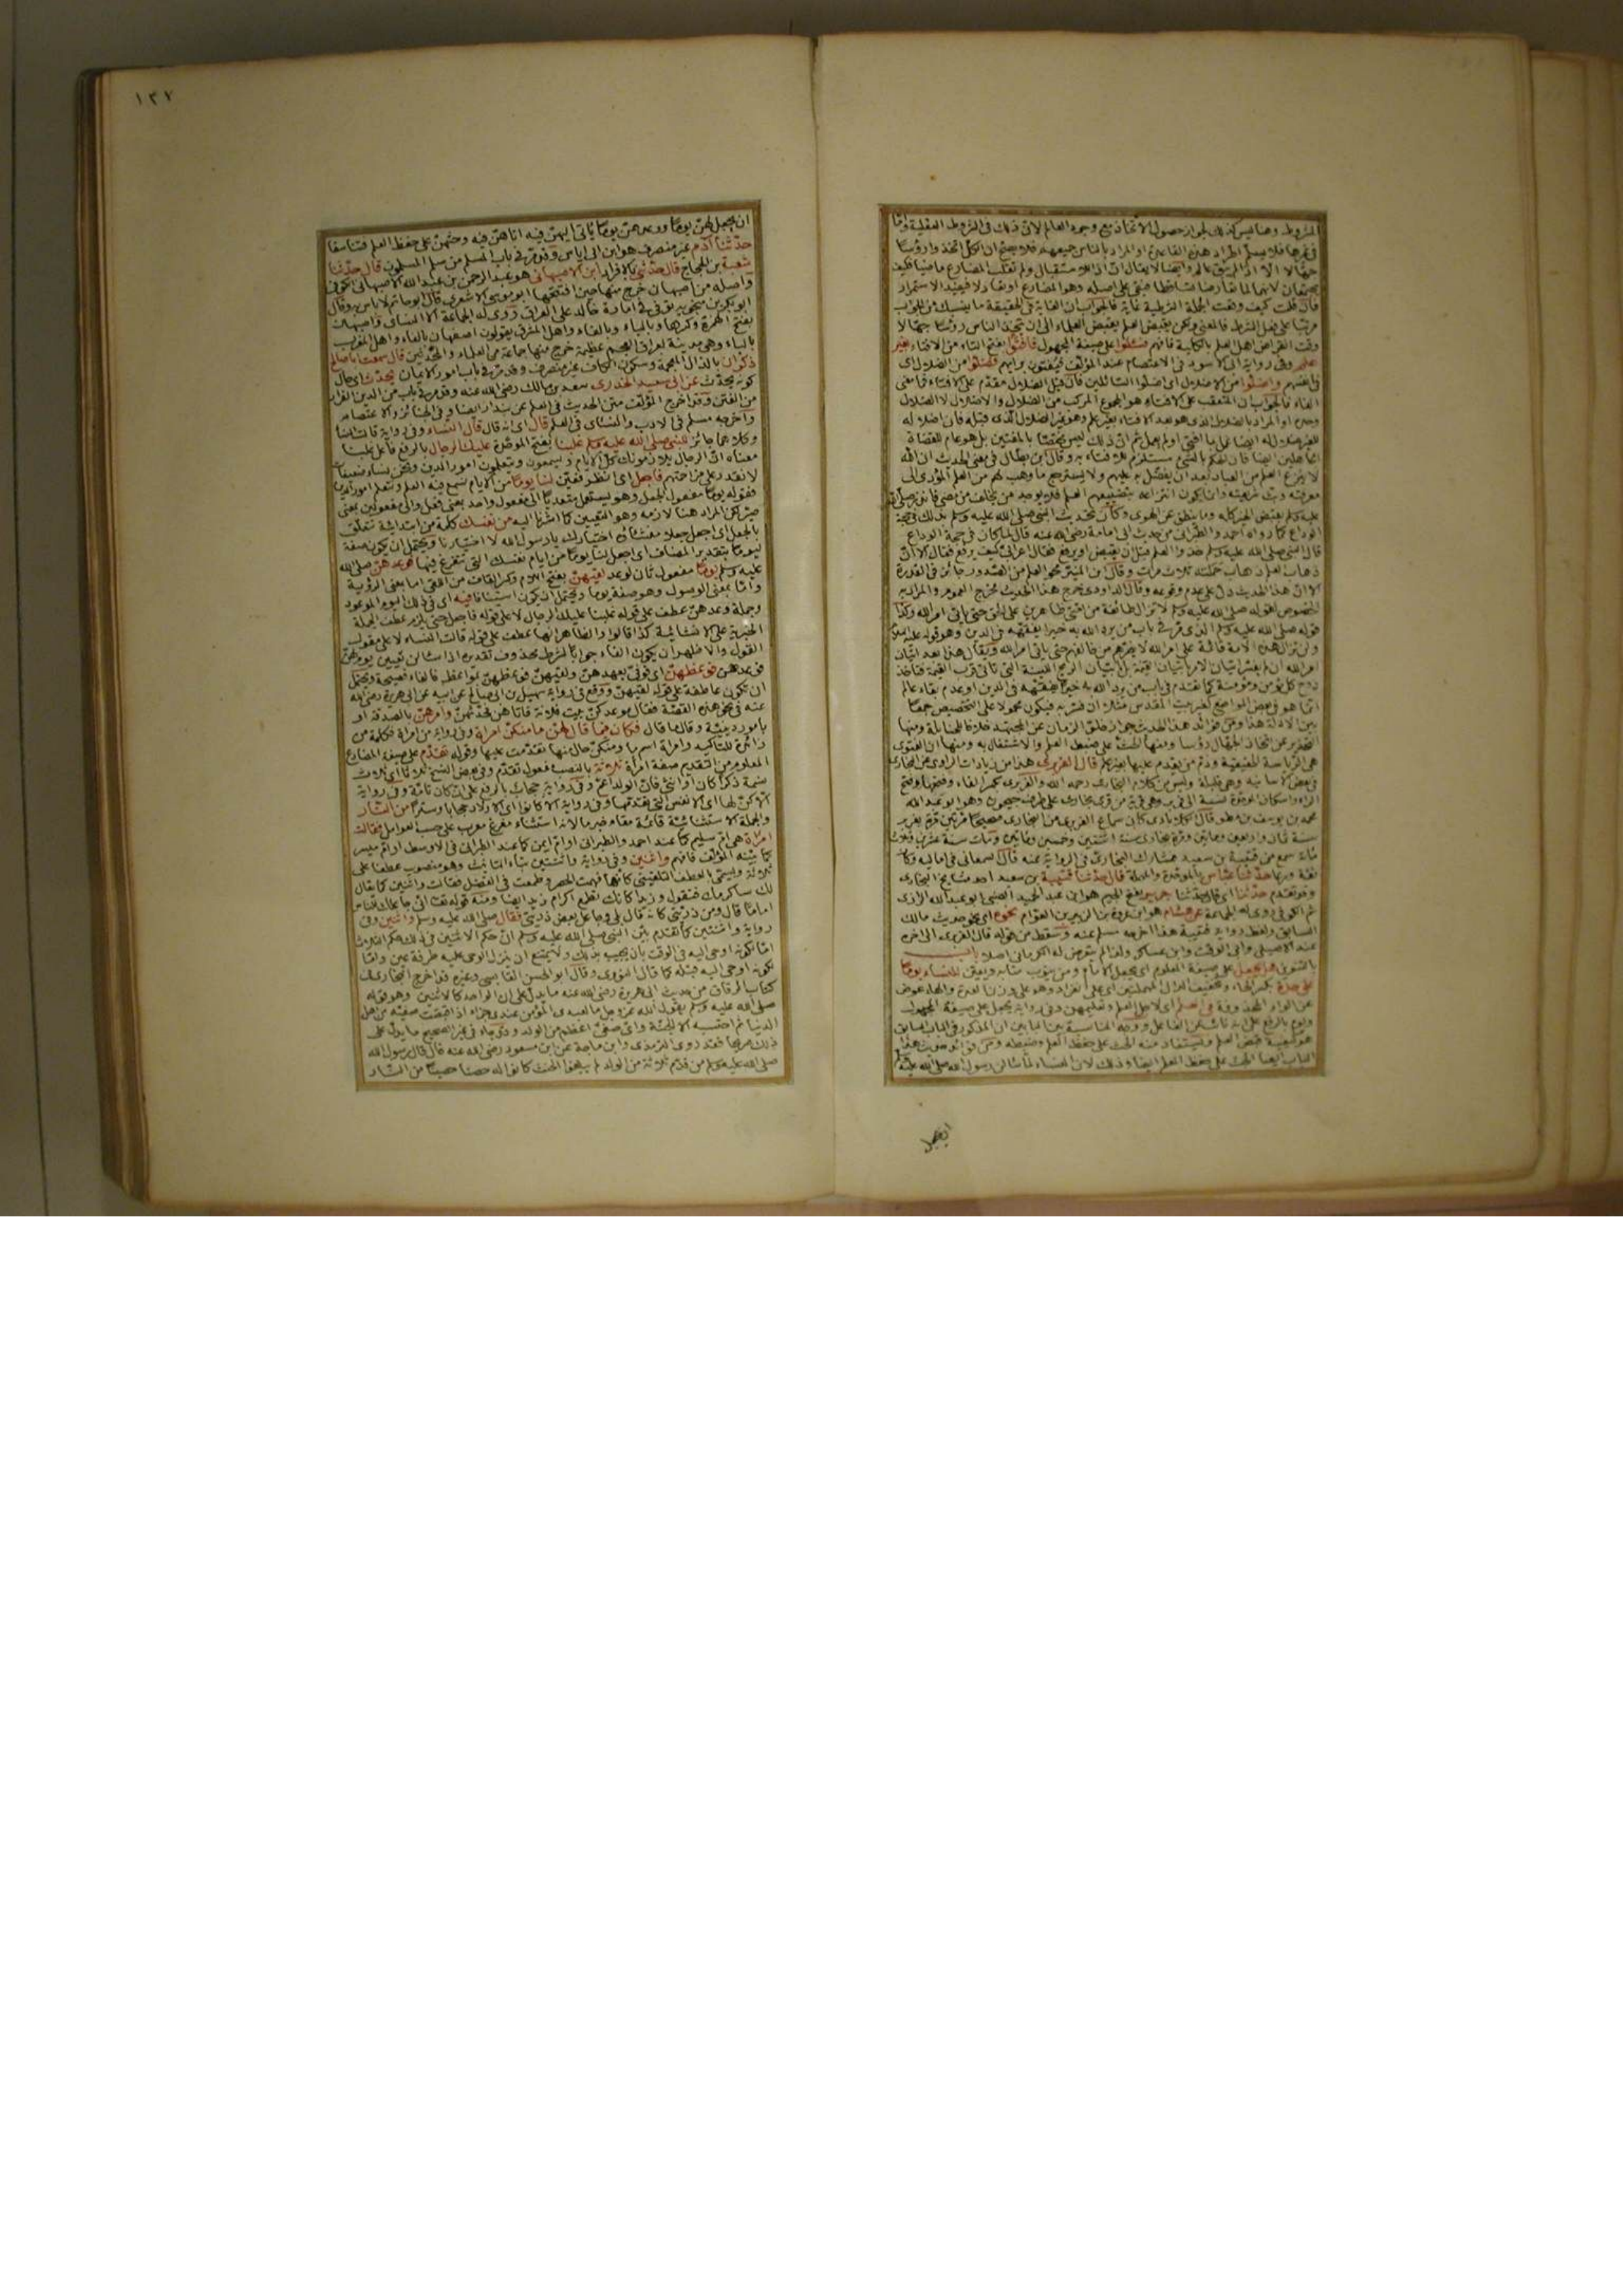 الشروط وهنا ليس كذلك لجواز حصول الاتخاذ مع وجود العالم لان ذلك في الشروط العقلية واما
في غيرها فلا يسلم اطراد هذه القاعدة او المراد بالناس جميعهم فلا يصح ان الكل اتخذوا رؤسا
جهالا الا اذا لم يبق عالم
فان قلت كيف وقعت الجملة الشرطية غاية فالجواب ان الغاية في الحقيقة ما ينسبك من الجواب
مرتبا على فعل الشرط فالمعنى ولكن يقبض العلم بقبض العلماء الى ان يتخذ الناس رؤسا جهالا
وقت انقراض اهل العلم بالكلية فافهم فسئلوا على صيغة المجهول فافتوا بفتح التاء من الافتاء بغير
علم وفي رواية ابي الاسود في الاعتصام عند المؤلف فيفتون برايهم فضلوا من الضلال اي
في انفسهم واضلوا من الاضلال اي اضلوا السائلين فان قيل الضلال مقدم على الافتاء فما معنى
الفاء فالجواب ان المتعقب على الافتاء هو المجموع المركب من الضلال والاضلال لا الضلال
وحده او المراد بالضلال الذي هو بعد الافتاء بغير علم وهو غير الضلال الذي قبله فان اضلاله
ايضا فان الحكم بالشئ مستلزم للافتاء به وقال ابن بطال في معنى الحديث ان الله
لا ينزع العلم من العباد بعد ان يتفضل به عليهم ولا يسترجع ما وهب لهم من العلم المؤدي الى
معرفته وبث شريعته وانما يكون انتزاعه بتضييعهم العلم فلا يوجد من يخلف من مضى فانذر صلى الله
عليه وسلم بقبض الخير كله وما ينطق عن الهوى وكان تحديث النبي صلى الله عليه وسلم بذلك في حجة
الوداع كما رواه احمد والطبراني من حديث ابي امامة رضي الله عنه قال لما كان في حجة الوداع
قال النبي صلى الله عليه وسلم خذوا العلم قبل ان يقبض او يرفع فقال اعرابي كيف يرفع فقال الا ان
ذهاب العلم ذهاب حملته ثلاث مرات وقال ابن المنير محو العلم من الصدور جائز في القدرة
الا ان هذا الحديث دل على عدم وقوعه وقال الداودي خرج هذا الحديث مخرج العموم والمراد به
الخصوص لقوله صلى الله عليه وسلم لا تزال طائفة من امتي ظاهرين على الحق حتى ياتي امر الله وكذا
قوله صلى الله عليه وسلم الذي مر في باب من يرد الله به خيرا يفقهه في الدين وهو قوله عليه السلام
ولن تزال هذه الامة قائمة على امر الله لا يضرهم من خالفهم حتى ياتي امر الله ويقال هذا بعد اتيان
امر الله ان لم يفسر اتيان الامر باتيان القيمة بل باتيان الريح اللينة التي تاتي قرب القيمة فتاخذ
روح كل مؤمن ومؤمنة كما تقدم في باب من يرد الله به خيرا يفقهه في الدين او عدم بقاء عالم
انما هو في بعض المواضع كغير بيت المقدس مثلا ان فسر به فيكون محمولا على التخصيص جمعا
بين الادلة هذا ومن فوائد هذا الحديث جواز خلو الزمان عن المجتهد خلافا للحنابلة ومنها
التحذير عن اتخاذ الجهال رؤسا ومنها الحث على ضبط العلم والاشتغال به ومنها ان الفتوى
هي الرياسة الحقيقية وذم من يقدم عليها بغير علم قال الفربري هذا من زيادات الراوي عن البخاري
في بعض الاسانيد وهي قليلة وليس من كلام البخاري رحمه الله والفربري بكسر الفاء وفتحها وفتح
الراء واسكان الموحدة نسبة الى فربر وهي قرية من قرى بخارى على طرف جيحون وهو ابو عبد الله
محمد بن يوسف بن مطر قال الكلاباذي كان سماع الفربري من البخاري صحيحا مرتين مرة بفربر
سنة ثمان واربعين ومايتين ومرة ببخارى سنة اثنتين وخمسين ومايتين ومات سنة عشرين وثلث
مائة سمع من قتيبة بن سعيد فشارك البخاري في الرواية عنه قال السمعاني في اماليه وكان
ثقة ورعا حدثنا عباس بالموحدة والمهملة قال حدثنا قتيبة بن سعيد احد مشايخ البخاري
وقد تقدم حدثنا اي قال حدثنا جرير بفتح الجيم هو ابن عبد الحميد الضبي ابو عبد الله الرازي
ثم الكوفي روى له الجماعة عن هشام هو ابن عروة بن الزبير بن العوام نحوه اي نحو حديث مالك
السابق ولفظ رواية قتيبة هذا اخرجه مسلم عنه وسقط من قوله قال الفربري الى اخره
عند الاصيلي وابي الوقت وابن عساكر ولذا لم يتعرض له الكرماني اصلا باب
بالتنوين هل يجعل على صيغة المعلوم اي يجعل الامام ومن ينوب منابه للنساء يوما
على حدة بكسر الحاء وتخفيف الدال المهملتين اي على انفراد وهو على وزن العدة والهاء عوض
عن الواو المحذوفة في العلم اي لاجل العلم وتعليمهن وفي رواية يجعل على صيغة المجهول
ويوم بالرفع على انه نائب عن الفاعل ووجه المناسبة بين البابين ان المذكور في الباب السابق
هو كيفية قبض العلم ويستفاد منه الحث على حفظ العلم وضبطه ومن فوائد حديث هذا
الباب ايضا الحث على حفظ العلم ايضا وذلك لان النساء لما سالن رسول الله صلى الله عليه وسلم
ان يجعل
١٣٧
ان يجعل لهن يوما ووعدهن يوما ياتي اليهن فيه اتاهن فيه وحثهن على حفظ العلم فتناسبا
حدثنا آدم غير منصرف هو ابن ابي اياس وقد مر في باب المسلم من سلم المسلمون قال حدثنا
شعبة بن الحجاج قال حدثني بالافراد ابن الاصبهاني هو عبد الرحمن بن عبد الله الاصبهاني الكوفي
واصله من اصبهان خرج منها حين افتتحها ابو موسى الاشعري قال ابو حاتم لا باس به وقال
ابو بكر بن منجويه توفي في امارة خالد على العراق روى له الجماعة الا النسائي واصبهان
بفتح الهمزة وكسرها وبالباء وبالفاء واهل المشرق يقولون اصفهان بالفاء واهل المغرب
بالباء وهي مدينة بعراق العجم عظيمة خرج منها جماعة من العلماء والمحدثين قال سمعت ابا صالح
ذكوان بالذال المعجمة وسكون الكاف غير منصرف وقد مر في باب امور الايمان يحدث اي حال
كونه يحدث عن ابي سعيد الخدري سعد بن مالك رضي الله عنه وقد مر في باب من الدين الفرار
من الفتن وقد اخرج المؤلف متن الحديث في العلم عن بندار ايضا وفي الجنائز والاعتصام
واخرجه مسلم في الادب والنسائي في العلم قال اي انه قال قال النساء وفي رواية قالت النساء
وكلاهما جائز للنبي صلى الله عليه وسلم غلبنا بفتح الموحدة عليك الرجال بالرفع فاعل غلبنا
معناه ان الرجال يلازمونك كل الايام ويسمعون ويتعلمون امور الدين ونحن نساء ضعيفات
لا نقدر على مزاحمتهم فاجعل اي انظر فعين لنا يوما من الايام نسمع فيه العلم ونتعلم امور الدين
فقوله يوما مفعول الجعل وهو يستعمل متعديا الى مفعول واحد بمعنى فعل والى مفعولين بمعنى
صير لكن المراد هنا لازمه وهو التعيين كما اشرنا اليه من نفسك كلمة من ابتدائية تتعلق
بالجعل اي اجعل جعلا منشئه اختيارك يا رسول الله لا اختيارنا ويحتمل ان يكون صفة
ليوما بتقدير المضاف اي اجعل لنا يوما من ايام نفسك التي تتفرغ فيها فوعدهن صلى الله
عليه وسلم يوما مفعول ثان لوعد لقيهن بفتح اللام وكسر القاف من اللقي اما بمعنى الرؤية
واما بمعنى الوصول وهو صفة يوما ويحتمل ان يكون استينافا فيه اي في ذلك اليوم الموعود
وجملة وعدهن عطف على قوله غلبنا عليك الرجال لا على قوله فاجعل حتى يلزم عطف الجملة
الخبرية على الانشائية كذا قالوا والظاهر انها عطف على قوله قالت النساء لا على مقول
القول والاظهر ان يكون الفاء جوابا لشرط محذوف
فوعدهن فوعظهن اي فوفى بعهدهن ولقيهن فوعظهن بمواعظ فالفاء فصيحة ويحتمل
ان تكون عاطفة على قوله لقيهن ووقع في رواية سهيل بن ابي صالح عن ابيه عن ابي هريرة رضي الله
عنه في نحو هذه القصة فقال موعدكن بيت فلانة فاتاهن فحدثهن وامرهن بالصدقة او
بامور دينية وقال ما قال فكان فيما قال لهن ما منكن امراة وفي رواية من امراة فكلمة من
زائدة للتاكيد وامراة اسم ما ومنكن حال منها تقدمت عليها وقوله تقدم على صيغة المضارع
المعلوم من التقديم صفة امراة ثلاثة بالنصب مفعول تقدم وفي بعض النسخ ثلاثا اي ثلاث
نسمة ذكرا كان او انثى فان الولد اعم وفي رواية حجاب بالرفع على ان كان تامة وفي رواية
الا كن لها اي الانفس التي تقدمها وفي رواية الا كانوا اي الاولاد حجابا وسترا من النار
والجملة الاستثنائية قائمة مقام خبر ما لانه استثناء مفرغ معرب على حسب العوامل فقالت
امراة هي ام سليم كما عند احمد والطبراني او ام ايمن كما عند الطبراني في الاوسط او ام مبشر
كما بينه المؤلف فافهم واثنين وفي رواية واثنتين بتاء التانيث وهو منصوب عطفا على
ثلاثة ويسمى بالعطف التلقيني كانها فهمت الحصر وطمعت في الفضل فقالت واثنين كما يقال
لك ساكرمك فتقول وزيدا كانك تطلب اكرام زيد ايضا ومنه قوله تعالى اني جاعلك للناس
اماما قال ومن ذريتي كانه قال بلى وجاعل بعض ذريتي فقال صلى الله عليه وسلم واثنين وفي
رواية واثنتين كما تقدم بين النبي صلى الله عليه وسلم ان حكم الاثنين في ذلك حكم الثلاث
اما لكونه اوحي اليه في الوقت بان يجيب بذلك ولا يمتنع ان ينزل الوحي عليه طرفة عين واما
لكونه اوحي اليه قبله كما قال النووي وقال ابو الحسن القابسي وغيره قد اخرج البخاري في
كتاب الرقاق من حديث ابي هريرة رضي الله عنه ما يدل على ان الواحد كالاثنين وهو قوله
صلى الله عليه وسلم يقول الله عز وجل ما لعبدي المؤمن عندي جزاء اذا قبضت صفيه من اهل
الدنيا ثم احتسبه الا الجنة واي صفي اعظم من الولد وقد جاء في غير الصحيح ما يدل على
ذلك صريحا فقد روى الترمذي وابن ماجة عن ابن مسعود رضي الله عنه قال قال رسول الله
صلى الله عليه وسلم من قدم ثلاثة من الولد لم يبلغوا الحنث كانوا له حصنا حصينا من النار